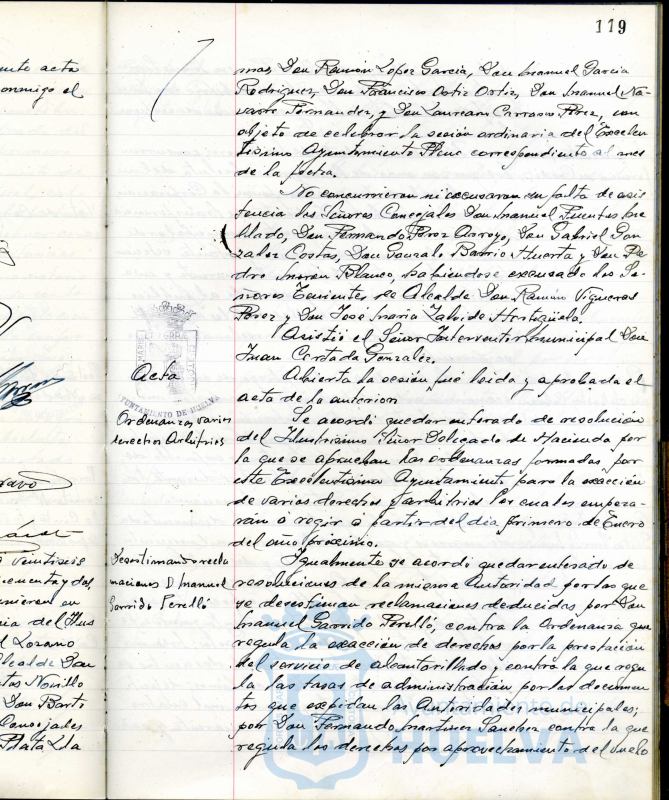 119
mas, Don Ramón Lopez Garcia, Don Manuel Garcia
Rodriguez, Don Francisco Ortiz Ortiz, Don Manuel Na-
varro Fernandez, y Don Laureano Carrasco Pérez, con
objeto de celebrar la sesión ordinaria del Excelen-
tísimo Ayuntamiento Pleno correspondiente al mes
de la fecha.
No concurrieron ni excusaron su falta de asis
tencia los Señores Concejales Don Manuel Fuentes
Don Fernando Perez Arroyo, Don Gabriel Gon
zalez Costas, Don Gonzalo Barrio Huerta y Don Pe
dro Morón Blanco, habiendose excusado los Se-
ñores Tenientes de Alcalde Don Ramón Vigueras
Perez y Don José Maria Zalvide
Asistió el Señor Interventor municipal Don
Juan Certada Gonzalez.
Abierta la sesión fué leida y aprobada el
acta de la anterior.
Se acordó quedar enterado de resolución
del Ilustrisimo Señor Delegado de Hacienda por
la que se aprueban las ordenanzas formadas por
este Excelentisimo Ayuntamiento para la exacción
de varios derechos y arbitrios los cuales empeza-
rán á regir a partir del dia primero de Enero
del año próximo.
Igualmente se acordó quedar enterado de
resoluciones de la misma Autoridad por las que
se desestiman reclamaciones deducidas por Don
Manuel Garrido Perelló, contra la Ordenanza que
regula la exacción de derechos por la prestación
del servicio de alcantarillado y contra la que regu
la las tasas de administración por los documen
tos que expidan las Autoridades municipales;
por Don Fernando Martinez Sanchez, contra la que
regula los derechos por aprovechamiento del suelo
Acta
Ordenanzas varios
derechos Arbitrios
Desestimando recla
maciones D Manuel
Garrido Perelló
AYUNTAMIENTO DE HUELVA
Ayuntamiento de
HUELVA
ente acta
conmigo el
Bravo
veintiseis
cincuenta y dos,
unieron en
cia del Ilus
Lozano
Alcalde Don
tas Novillo
Don Barto
Concejales
Plata